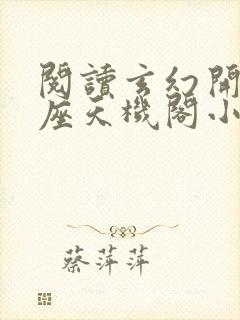 閱讀玄幻開
座天機閣小
蔡萍萍